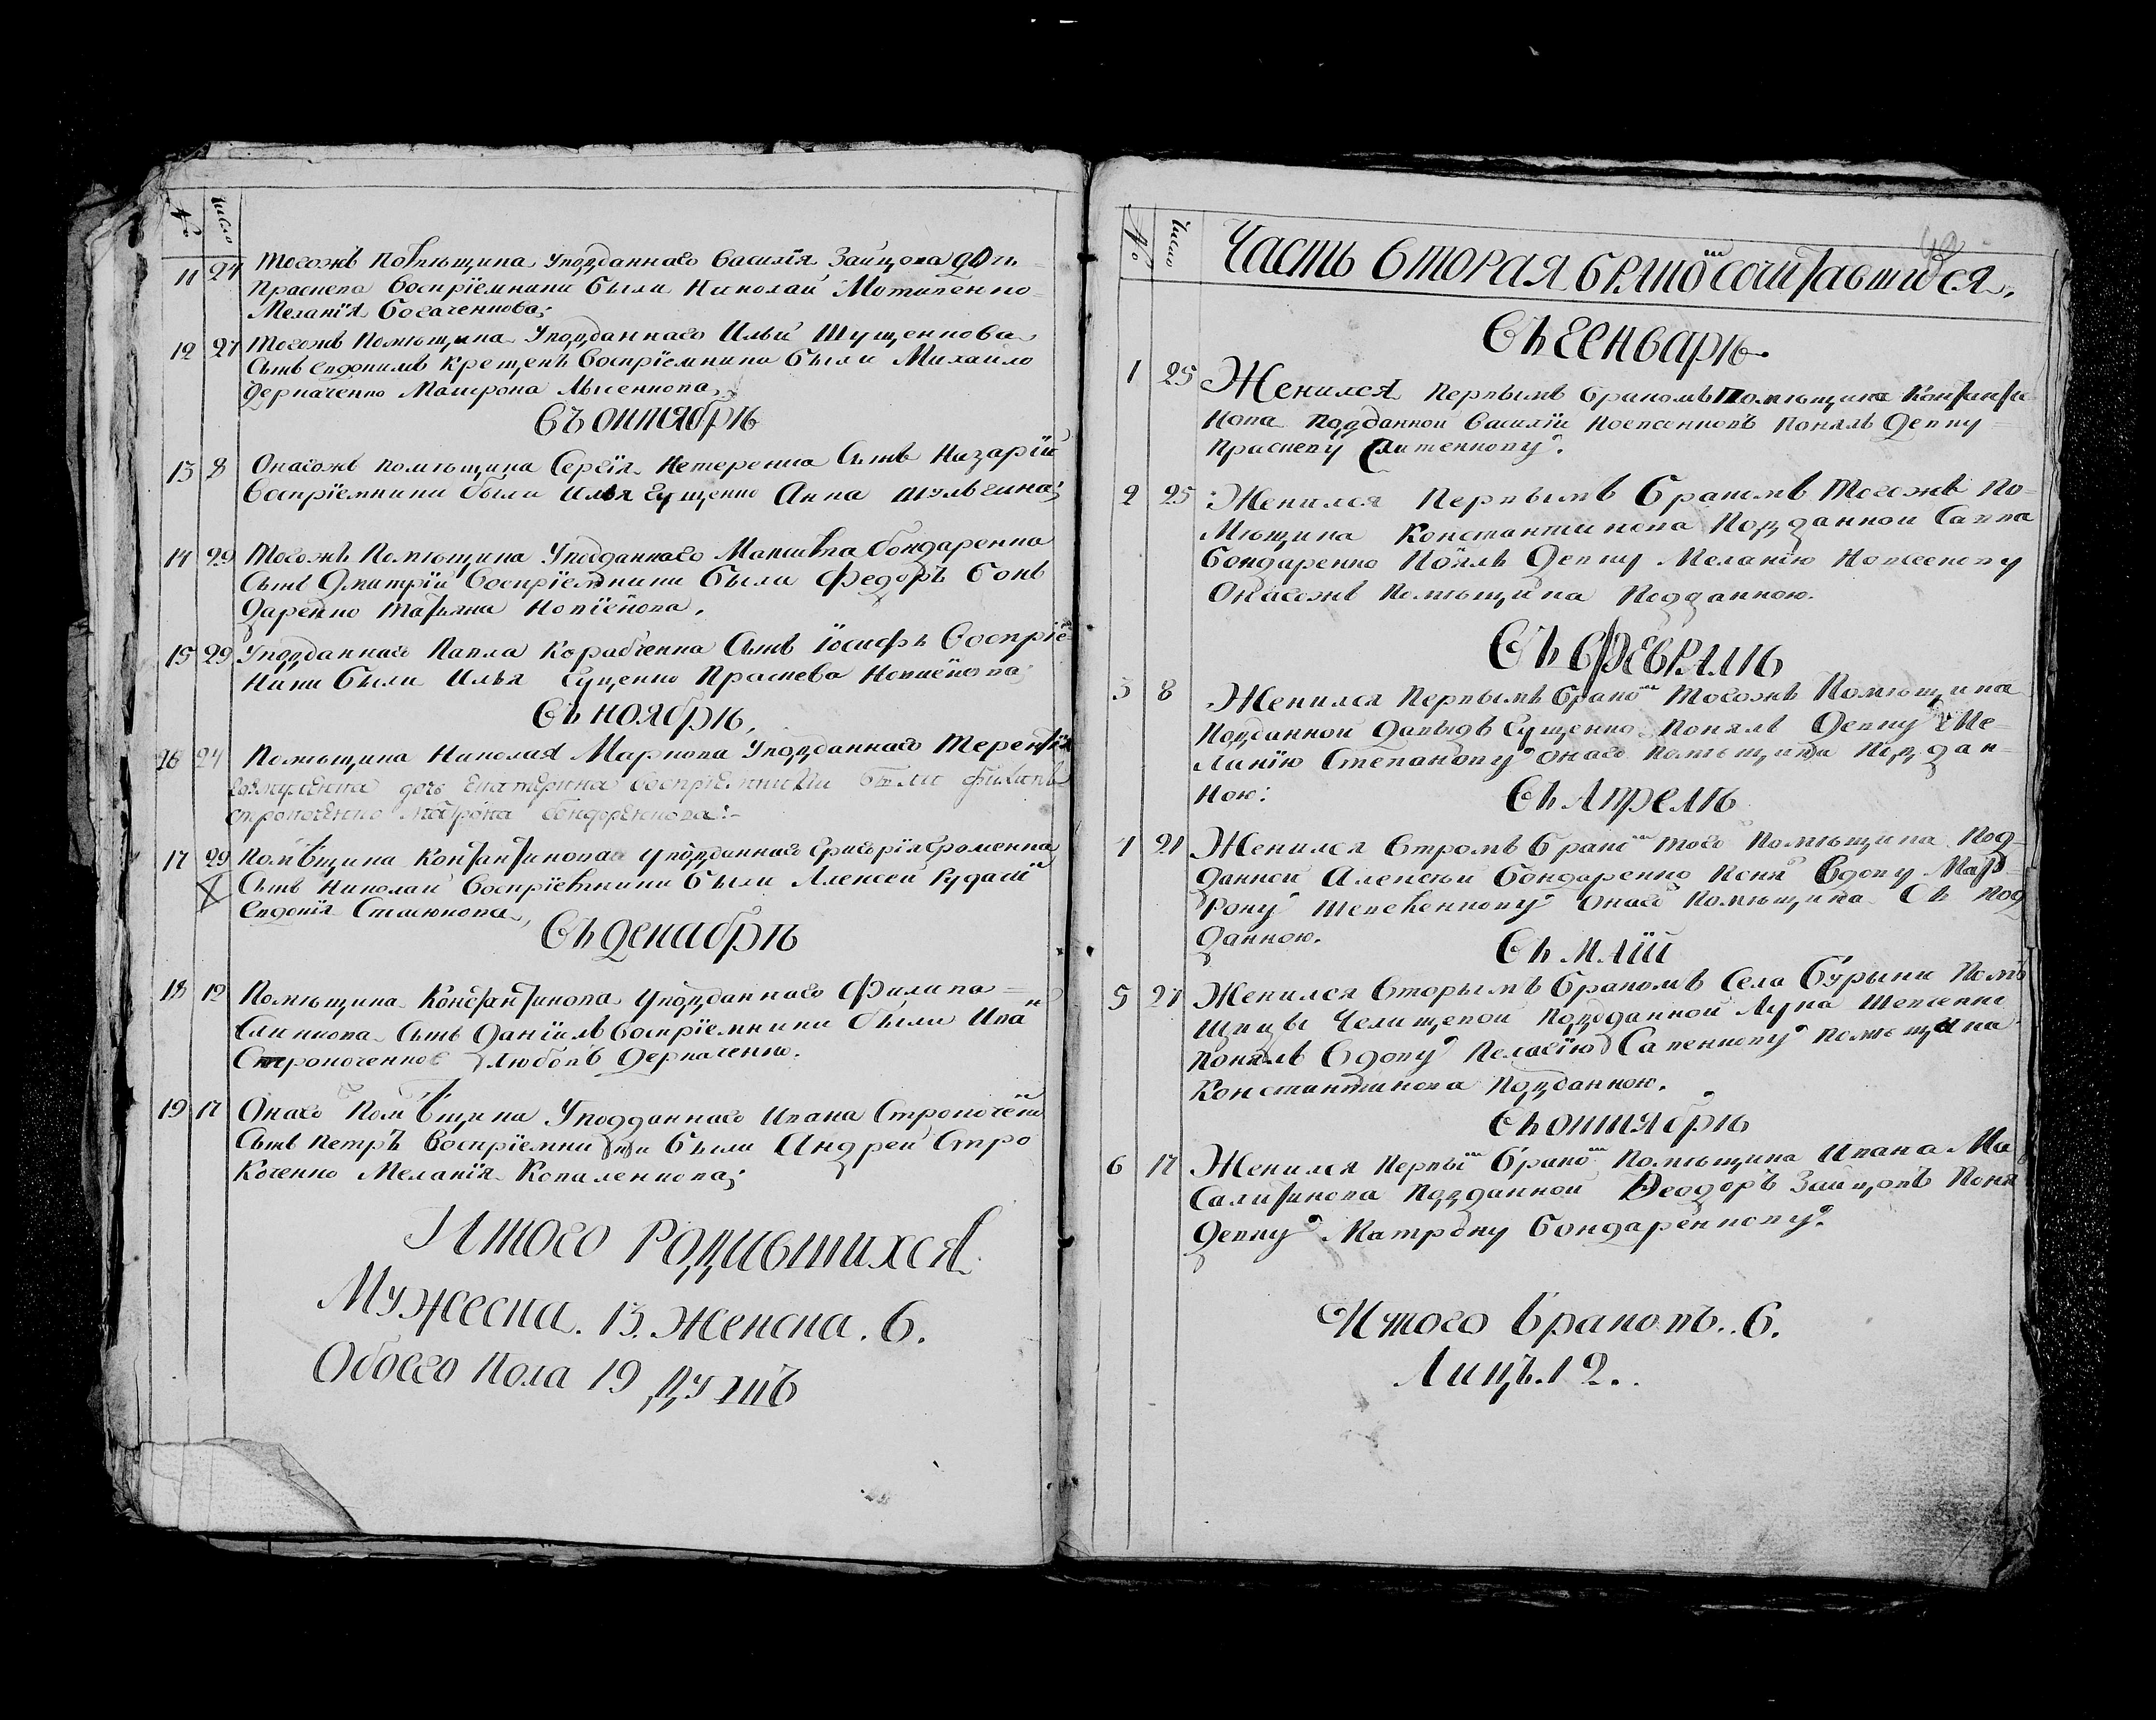 № Число
11 27 Тогожъ Помѣщика Уподданнаго Василія Зайцова дочь
Праскева Воспріемники были Николай Мотиченко
Меланія Богаченкова;
12 27 Тогожъ Помѣщика Уподданнаго Ильи Шущенкова
Сынъ Евдокимъ крещенъ Воспріемники были Михайло
Деркаченко Матрона Лысенкова,
Въ октябрѣ
13 8 Онагожъ помѣщика Сергія Нетеренка Сынъ Назарій
Воспріемники были Илья Сущенко Анна Шульгина;
14 29 Тогожъ Помѣщика Уподданнаго Максима бондаренка
Сынъ Дмитрій Воспріемники были Федоръ Бонъ
даренко Татьяна Новікова.
15 29 Уподданнаго Павла Карабченка Сынъ Іосифъ Воспріе
ники были Илья Сущенко Праскева
Въ ноябрѣ,
16 24 Помѣщика Николая Маркова Уподданнаго Терентія
дочь Екатерина воспріемники были Филипъ
строкоченко Матрона бондоренкова:-
17 29 Помѣщика Константинова уподданнаго Григорія Фоменка
Сынъ Николай Воспріемники были Алексей Рудай
Евдокія Стасюкова,
Въ декабрѣ
18 12 Помѣщика Константинова уподданнаго Филипа
Слинкова Сынъ Даніилъ Воспріемники были Ива
Строкоченков Любовъ Деркаченко.
19 17 Онаго Помѣщика Уподданнаго Ивана Строкочен
Сынъ Петръ Воспріемники были Андрей Стро
коченко Меланія Коваленкова;
Итого Родившихся
Мужеска. 13. Женска. 6.
Обоего Пола 19 душъ
№ Число
Часть вторая бракомъ сочитавшихся.
Въ Генварѣ
1 25 Женился Первымъ бракомъ Помѣщика Константи
нова Подданной Василій понялъ Девку
Праскеву
2 25 Женился Первымъ Бракомъ Тогожъ По-
мѣщика Константинова Подданной Савва
Бондаренко Понялъ Девку Меланію
Онагожъ Помѣщика Подданною.
Въ Февралѣ
3 8 Женился Первымъ Бракомъ Тогожъ Помѣщика
Подданной Давыдъ Сущенко Понялъ Девку Ме-
ланію Степанову онаго помѣщика Поддан-
ною:
Въ Апрелѣ
4 21 Женился Втромъ Бракомъ того Помѣщика Под-
данной Алексѣй Бондаренко Поня Вдову Мат
рону онаго Помѣщика Съ Под
данною.
Въ Маіи
5 27 Женился Вторымъ Бракомъ Села Бурыни Помѣ
щицы Челищевой Подданной Лука
понялъ Вдову Пелагію Савенкову помѣщика
Константинова Подданною.
Въ октябрѣ
6 17 Женился Первы Бракомъ Помѣщика Ивана Ма
Подданной Феодоръ Зайцовъ Поня
Девку Матрону Бондаренкову.
Итого Браковъ. 6.
Лицъ. 12.